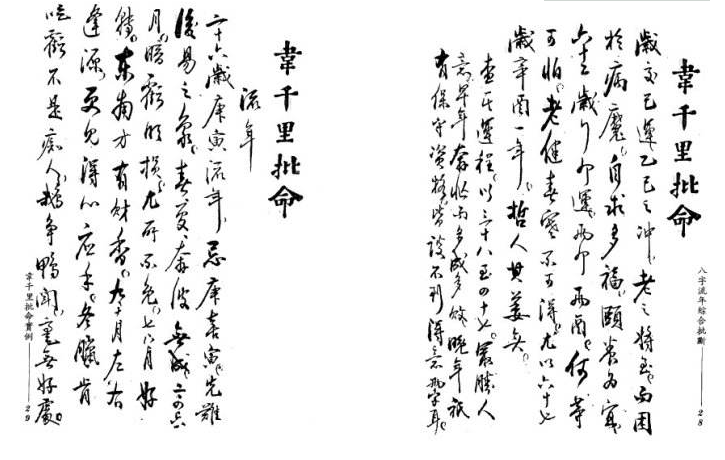 八字流年綜合批斷——28
韋千里批命
歲交己運。乙己之冲。老之將至。而困
於病魔。自求多福。頤養為宜
六十三歲行卯運。兩卯兩酉。何等
可怕。老健春寒不可得。尤以六十七
歲辛酉一年。哲人其萎矣。
查其運程。以三十八至四十七。最勝人
意。早年奔忙而多成多敗。晚年祇
有保守資格。皆談不到得意兩字耳。
韋千里批命
流年
二十六歲庚寅流年。忌庚喜寅。先難
後易之象。春夏奔波無成。二四六
月。暗虧明損。尤所不免。七八月好
轉。東南方有財香。九十月左右
逢源。更見得心應手。冬臘肯
吃虧不是痴人。鵝爭鴨鬧。毫無好處。
韋千里批命實例——29